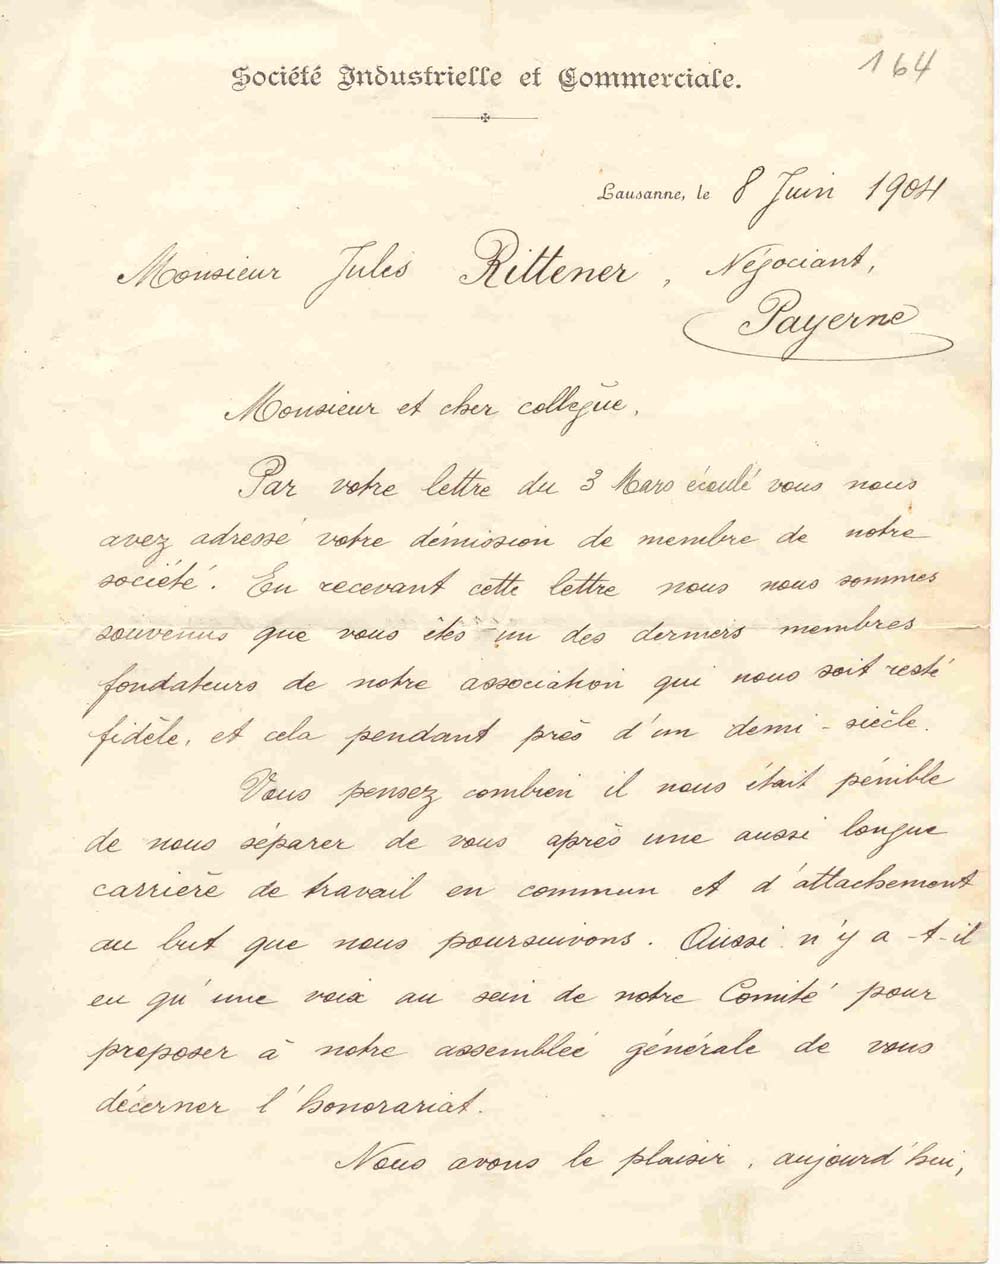 164
Société Industrielle et Commerciale.
Lausanne, le 8 Juin 1904
Monsieur Jules Rittener, Négociant,
Payerne
Monsieur et cher collègue,
Par votre lettre du 3 Mars écoulé vous nous
avez adressé votre démission de membre de notre
société. En recevant cette lettre nous nous sommes
souvenus que vous êtes un des derniers membres
fondateurs de notre association qui nous soit resté
fidèle, et cela pendant près d'un demi-siècle.
Vous pensez combien il nous était pénible
de nous séparer de vous après une aussi longue
carrière de travail en commun et d'attachement
au but que nous poursuivons. Aussi n'y a-t-il
eu qu'une voix au sein de notre Comité pour
proposer à notre assemblée générale de vous
décerner l'honorariat.
Nous avons le plaisir, aujourd'hui,